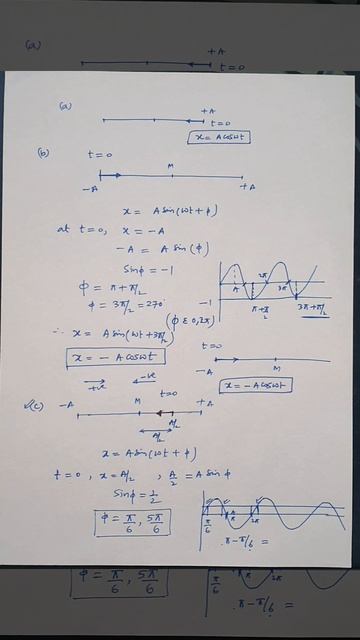 (a)
+A
t=0
(a)
+A
t=0
x = A cosωt
(b)
t=0
M
-A
+A
x = A sin(ωt + ϕ)
at t=0, x = -A
-A = A sin(ϕ)
Sinϕ = -1
ϕ = π + π/2
ϕ = 3π/2 = 270°
(ϕ ∈ 0,2π)
-1
2π
3π
π+π/2
3π+π/2
∴ x = A sin(ωt + 3π/2)
x = - A cosωt
t=0
-A
M
x = - A cosωt
+ve
-ve
(c)
-A
M
t=0
+A
A/2
A/2
x = A sin(ωt + ϕ)
t=0, x = A/2, A/2 = A sin ϕ
Sinϕ = 1/2
ϕ = π/6, 5π/6
π/6
π
2π
π - π/6 =
ϕ = π/6, 5π/6
π/6
2π
π - π/6 =